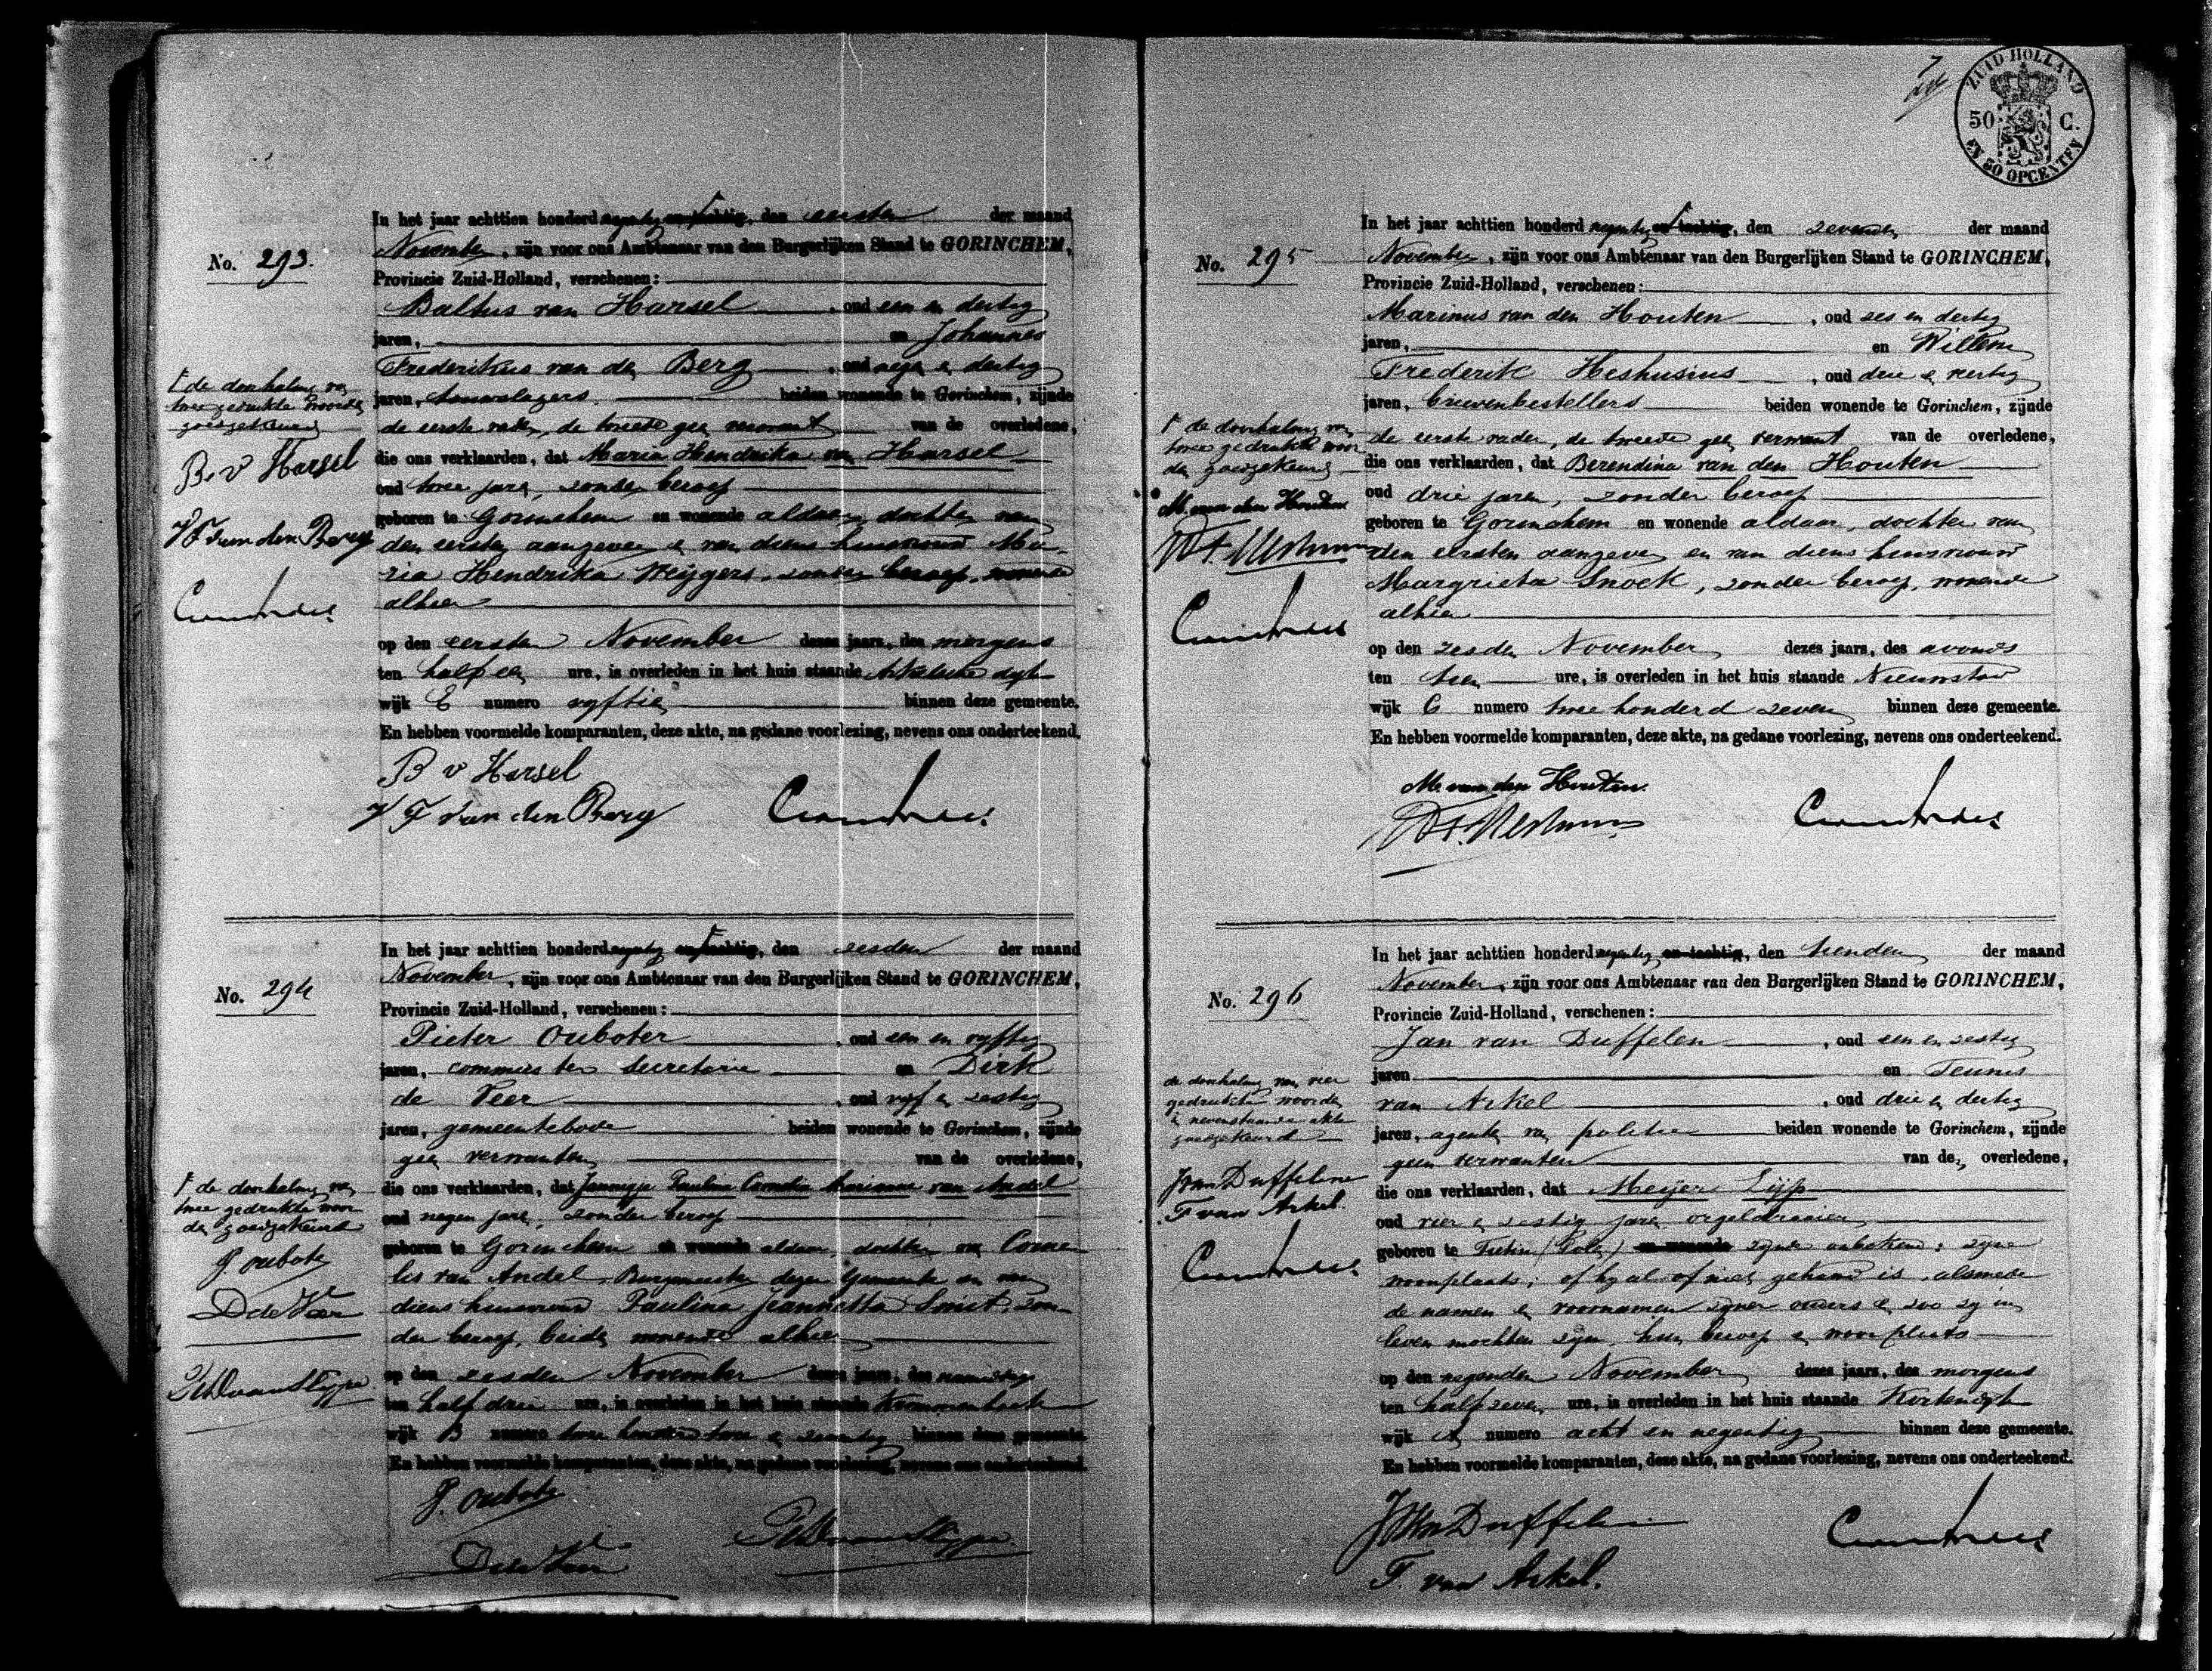 In het jaar achttien honderd negentig en tachtig, den eersten der maand
November, zijn voor ons Ambtenaar van den Burgerlijken Stand te GORINCHEM,
No. 293.
Provincie Zuid-Holland, verschenen:
Baltus van Harsel, oud een en dertig
jaren, en Johannes
Frederikus van den Berg, oud negen en dertig
jaren, touwslagers beiden wonende te Gorinchem, zijnde
de eerste vader, de tweede geen verwant van de overledene,
die ons verklaarden, dat Maria Hendrika van Harsel
oud twee jaren, zonder beroep
geboren te Gorinchem en wonende aldaar, dochter van
den eersten aangever en van diens huisvrouw Ma-
ria Hendrika Weijgers, zonder beroep, wonende
alhier
op den eersten November dezes jaars, des morgens
ten half een ure, is overleden in het huis staande Arkelsche dijk
wijk E numero vijftien binnen deze gemeente.
En hebben voormelde komparanten, deze akte, na gedane voorlezing, nevens ons onderteekend.
B v Harsel
J F van den Berg
de doorhaling van
twee gedrukte woorden
goedgekeurd
B. v Harsel
J F van den Berg
In het jaar achttien honderd negentig en tachtig, den zesden der maand
November, zijn voor ons Ambtenaar van den Burgerlijken Stand te GORINCHEM,
No. 294
Provincie Zuid-Holland, verschenen:
Pieter Ouboter, oud een en vijftig
jaren, commies ter Secretarie en Dirk
de Veer, oud vijf en zestig
jaren, gemeentebode beiden wonende te Gorinchem, zijnde
geen verwanten van de overledene,
die ons verklaarden, dat Jannigje Paulina Cornelia Marianne van Andel
oud negen jaren, zonder beroep
geboren te Gorinchem en wonende aldaar, dochter van Corne-
lis van Andel, Burgemeester dezer Gemeente en van
diens huisvrouw Paulina Jeannetta Smit, zon-
der beroep, beiden wonende alhier
op den zesden November dezes jaars, des namiddags
ten half drie ure, is overleden in het huis staande Krommenhoek
wijk B numero twee honderd twee en zeventig binnen deze gemeente.
En hebben voormelde komparanten, deze akte, na gedane voorlezing, nevens ons onderteekend.
P. Ouboter
D de Veer
de doorhaling van
twee gedrukte woor
den goedgekeurd
P. Ouboter
D de Veer
ZUID HOLLAND
50 C.
EN 50 OPCENTEN
In het jaar achttien honderd negentig en tachtig, den zevenden der maand
November, zijn voor ons Ambtenaar van den Burgerlijken Stand te GORINCHEM,
No. 295
Provincie Zuid-Holland, verschenen:
Marinus van den Houten, oud zes en dertig
jaren, en Willem
Frederik Heshusius, oud drie en veertig
jaren, brievenbestellers beiden wonende te Gorinchem, zijnde
de eerste vader, de tweede geen verwant van de overledene,
die ons verklaarden, dat Berendina van den Houten
oud drie jaren, zonder beroep
geboren te Gorinchem en wonende aldaar, dochter van
den eersten aangever en van diens huisvrouw
Margrieta Snoek, zonder beroep, wonende
alhier
op den zesden November dezes jaars, des avonds
ten tien ure, is overleden in het huis staande Nieuwstad
wijk C numero twee honderd zeven binnen deze gemeente.
En hebben voormelde komparanten, deze akte, na gedane voorlezing, nevens ons onderteekend.
M. van den Houten.
de doorhaling van
twee gedrukte woor
den goedgekeurd
M. van den Houten
In het jaar achttien honderd negentig en tachtig, den tienden der maand
November, zijn voor ons Ambtenaar van den Burgerlijken Stand te GORINCHEM,
No. 296
Provincie Zuid-Holland, verschenen:
Jan van Duffelen, oud een en zestig
jaren en Teunis
van Arkel, oud drie en dertig
jaren, agenten van politie beiden wonende te Gorinchem, zijnde
geen verwanten van den overledene,
die ons verklaarden, dat Meijer Lijp
oud vier en zestig jaren orgeldraaier
geboren te (Polen) en wonende zijnde onbekend: zijne
woonplaats; of hij al of niet gehuwd is, alsmede
de namen en voornamen zijner ouders en zoo zij in
leven mochten zijn hun beroep en woonplaats
op den negenden November dezes jaars, des morgens
ten half zeven ure, is overleden in het huis staande Kortendijk
wijk A numero acht en negentig binnen deze gemeente.
En hebben voormelde komparanten, deze akte, na gedane voorlezing, nevens ons onderteekend.
J van Duffelen
T. van Arkel.
de doorhaling van vier
gedrukte woorden
in nevenstaande akte
goedgekeurd
J van Duffelen
T van Arkel.